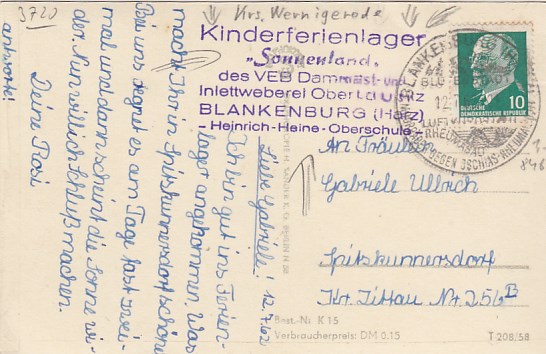 3720
Krs. Wernigerode
Kinderferienlager
"Sonnenland"
des VEB Dammast- und
Inlettweberei Oberlausitz
BLANKENBURG (Harz)
- Heinrich-Heine-Oberschule -
10
DEUTSCHE
DEMOKRATISCHE REPUBLIK
BLANKENBURG
12.
LUFT
RHEUMABAD
GEGEN ISCHIAS-RHEUMA
Liebe Gabriele! 12.7.62
Ich bin gut ins Ferien-
lager angekommen. Was
macht Ihr in Spitzkunnersdorf schönes
Bei uns regnet es am Tage fast zwei-
mal und dann scheint die Sonne wi-
der. Nun will ich Schluß machen.
Deine Rosi
antworte!
An Fräulein
Gabriele Ullrich
Spitzkunnersdorf
Kr. Zittau Nr. 256 B
Best.-Nr. K 15
Verbraucherpreis: DM 0.15
T 208/58